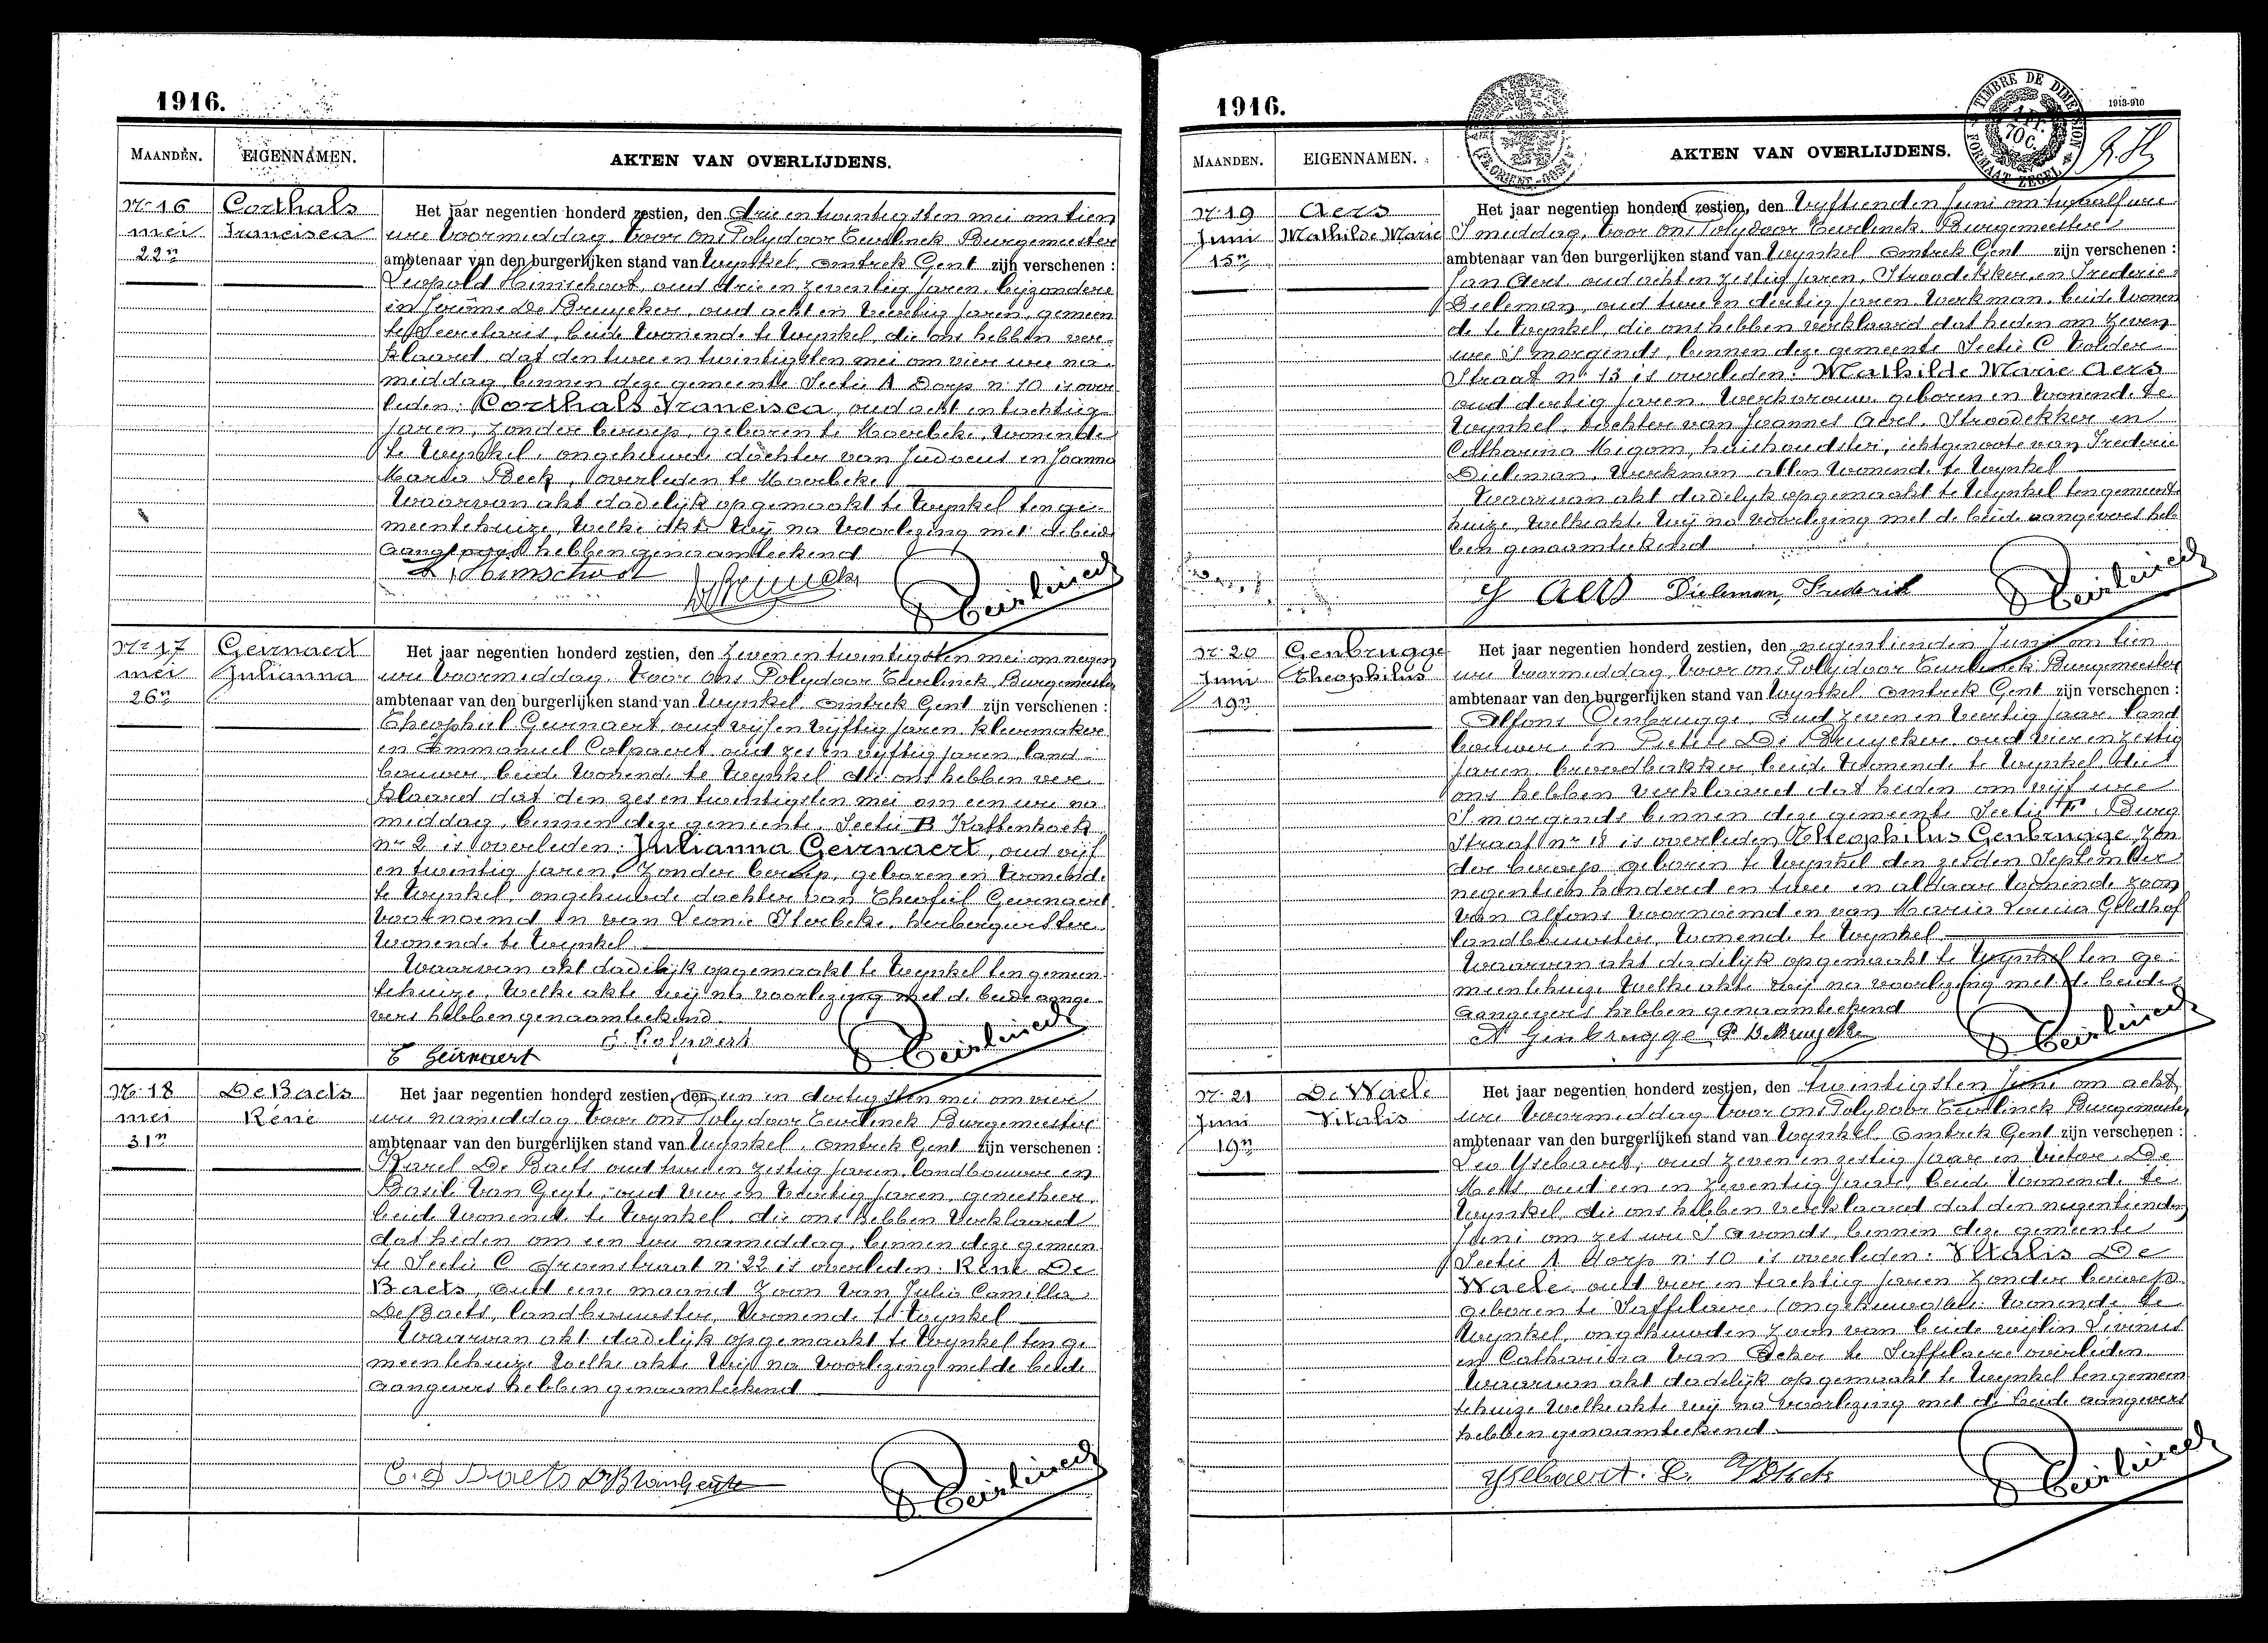 1916.
MAANDEN. EIGENNAMEN. AKTEN VAN OVERLIJDENS.
Nr 16 Corthals
mei Francisca
22n
Het jaar negentien honderd zestien, den drie en twintigsten mei om tien
ure voormiddag, voor ons Polydoor Teirlinck Burgemeester
ambtenaar van den burgerlijken stand van Wynkel, omtrek Gent zijn verschenen :
Leopold Himschoot, oud drie en zeventig jaren, bijzondere
en Jerôme De Bruycker, oud acht en veertig jaren, gemeen
te secretaris, beide wonende te Wynkel, die ons hebben ver-
klaard, dat den twee en twintigsten mei om vier ure na
middag, binnen deze gemeente Sectie A Dorp n. 10 is over
leden: Corthals Francisca, oud acht en tachtig
jaren, zonder beroep, geboren te Moerbeke, wonende
te Wynkel, ongehuwde dochter van Judocus en Joanna
Maria Beck, overleden te Moerbeke.
Waarvan akt dadelijk opgemaakt te Wynkel ten ge-
meentehuize, welke akte wij na voorlezing met de beide
aangevers hebben genaamteekend
L. Himschoot
Teirlinck
Nr 17 Geirnaert
mei Julianna
26n
Het jaar negentien honderd zestien, den zeven en twintigsten mei om negen
ure voormiddag voor ons Polydoor Teirlinck, Burgemeester
ambtenaar van den burgerlijken stand van Wynkel omtrek Gent zijn verschenen :
Theophiel Geirnaert oud vijf en vijftig jaren kleermaker
en Emmanuel Colpaert oud zes en vijftig jaren, land-
bouwer, beide wonende te Wynkel die ons hebben ver
klaard dat den zes en twintigsten mei om een ure na
middag, binnen deze gemeente, Sectie B Kattenhoek
nr 2 is overleden: Julianna Geirnaert, oud vijf
en twintig jaren, zonder beroep, geboren en wonende
te Wynkel, ongehuwde dochter van Theofiel Geirnaert
voornoemd en van Leonie Sterbeke, herbergierster
wonende te Wynkel
Waarvan akt dadelijk opgemaakt te Wynkel ten gemeen
tehuize, welke akte wij na voorlezing met de beide aange-
vers hebben genaamteekend.
E. Colpaert
T Geirnaert
Teirlinck
Nr 18 De Baets
mei Réné
31n
Het jaar negentien honderd zestien, den een en dertigsten mei om vier
ure namiddag voor ons Polydoor Teirlinck Burgemeester
ambtenaar van den burgerlijken stand van Wynkel, omtrek Gent zijn verschenen :
Karel De Baets oud twee en zestig jaren, landbouwer en
Basil Van Geyte, oud vier en veertig jaren, geneesheer,
beide wonende te Wynkel, die ons hebben verklaard
dat heden om een ure namiddag, binnen deze gemeen
te Sectie C Groenstraat n. 22 is overleden: Réné De
Baets, oud eene maand zoon van Julia Camilla
De Baets, landbouwster, wonende te Wynkel
Waarvan akt dadelijk opgemaakt te Wynkel ten ge
meentehuize welke akte wij na voorlezing met de beide
aangevers hebben genaamteekend
C. D Baets
Teirlinck
1916.
TIMBRE DE DIMENSION
70C.
FORMAAT ZEGEL
1913-910
MAANDEN. EIGENNAMEN. AKTEN VAN OVERLIJDENS.
Nr. 19 Aers
Juni Mathilde Marie
15n
Het jaar negentien honderd zestien, den vyftienden Juni om twaalf ure
S middag, voor ons Polydoor Teirlinck Burgemeester
ambtenaar van den burgerlijken stand van Wynkel omtrek Gent zijn verschenen :
Jan Aers oud acht en zestig jaren, Stroodekker en Frederic
Dieleman, oud twee en dertig jaren werkman, beide wonen
de te Wynkel, die ons hebben verklaard dat heden om zeven
ure S morgends, binnen deze gemeente Sectie C Polder
Straat nr 13 is overleden: Mathilde Marie Aers
oud dertig jaren werkvrouw geboren en wonende te
Wynkel, dochter van Joannes Aers, Stroodekker en
Catharina Migom, huishoudster, echtgenoote van Frederic
Dieleman, werkman allen wonende te Wynkel
Waarvan akt dadelijk opgemaakt te Wynkel ten gemeente
huize, welke akte wij na voorlezing met de beide aangevers heb
ben genaamteekend
J Aers Dieleman, Frederik
Teirlinck
Nr. 20 Genbrugge
Juni Theophilus
19n
Het jaar negentien honderd zestien, den negentienden Juni om tien
ure voormiddag, voor ons Polydoor Teirlinck Burgemeester
ambtenaar van den burgerlijken stand van Wynkel omtrek Gent zijn verschenen :
Alfons Genbrugge, oud zeven en veertig jaar, land
bouwer, en Pieter De Bruycker oud vier en zestig
jaren broodbakker beide wonende te Wynkel die
ons hebben verklaard dat heden om vijf ure
S morgends binnen deze gemeente Sectie F. Burg
Straat nr 18 is overleden Theophilus Genbrugge, zon
der beroep geboren te Wynkel den zesden September
negentien honderd en twee en aldaar wonende zoon
van Alfons voornoemd en van Maria Louisa Geldhof
landbouwster, wonende te Wynkel
Waarvan akt dadelijk opgemaakt te Wynkel ten ge-
meentehuize welke akte wij na voorlezing met de beide
aangevers hebben genaamteekend
A Genbrugge P DeBruycker
Teirlinck
Nr. 21 De Waele
Juni Vitalis
19n
Het jaar negentien honderd zestien, den twintigsten Juni om acht
ure voormiddag voor ons Polydoor Teirlinck Burgemeester
ambtenaar van den burgerlijken stand van Wynkel omtrek Gent zijn verschenen :
Leo Ysebaert, oud zeven en zestig jaar en Victor De
Mets oud een en zeventig jaar beide wonende te
Wynkel die ons hebben verklaard dat den negentienden
Juni om zes ure S avonds, binnen deze gemeente
Sectie A dorp n. 10 is overleden: Vitalis De
Waele oud vier en tachtig jaren zonder beroep
geboren te Saffelaere, wonende te
Wynkel, ongehuwden zoon van beide wijlen Livinus
en Catharina Van Acker te Saffelaere overleden
Waarvan akt dadelijk opgemaakt te Wynkel ten gemeen
tehuize welke akte wij na voorlezing met de beide aangevers
hebben genaamteekend.
Ysebaert. L.
Teirlinck